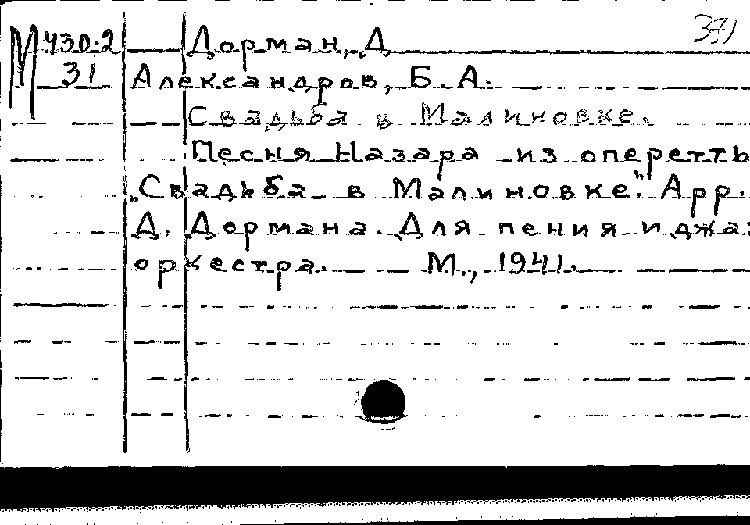 М 430-2 Дорман, Д 371
31 Александров, Б. А.
Свадьба в Малиновке.
Песня Назара из оперетты
„Свадьба в Малиновке". Арр.
Д. Дормана. Для пения и джаз
оркестра. М., 1941.